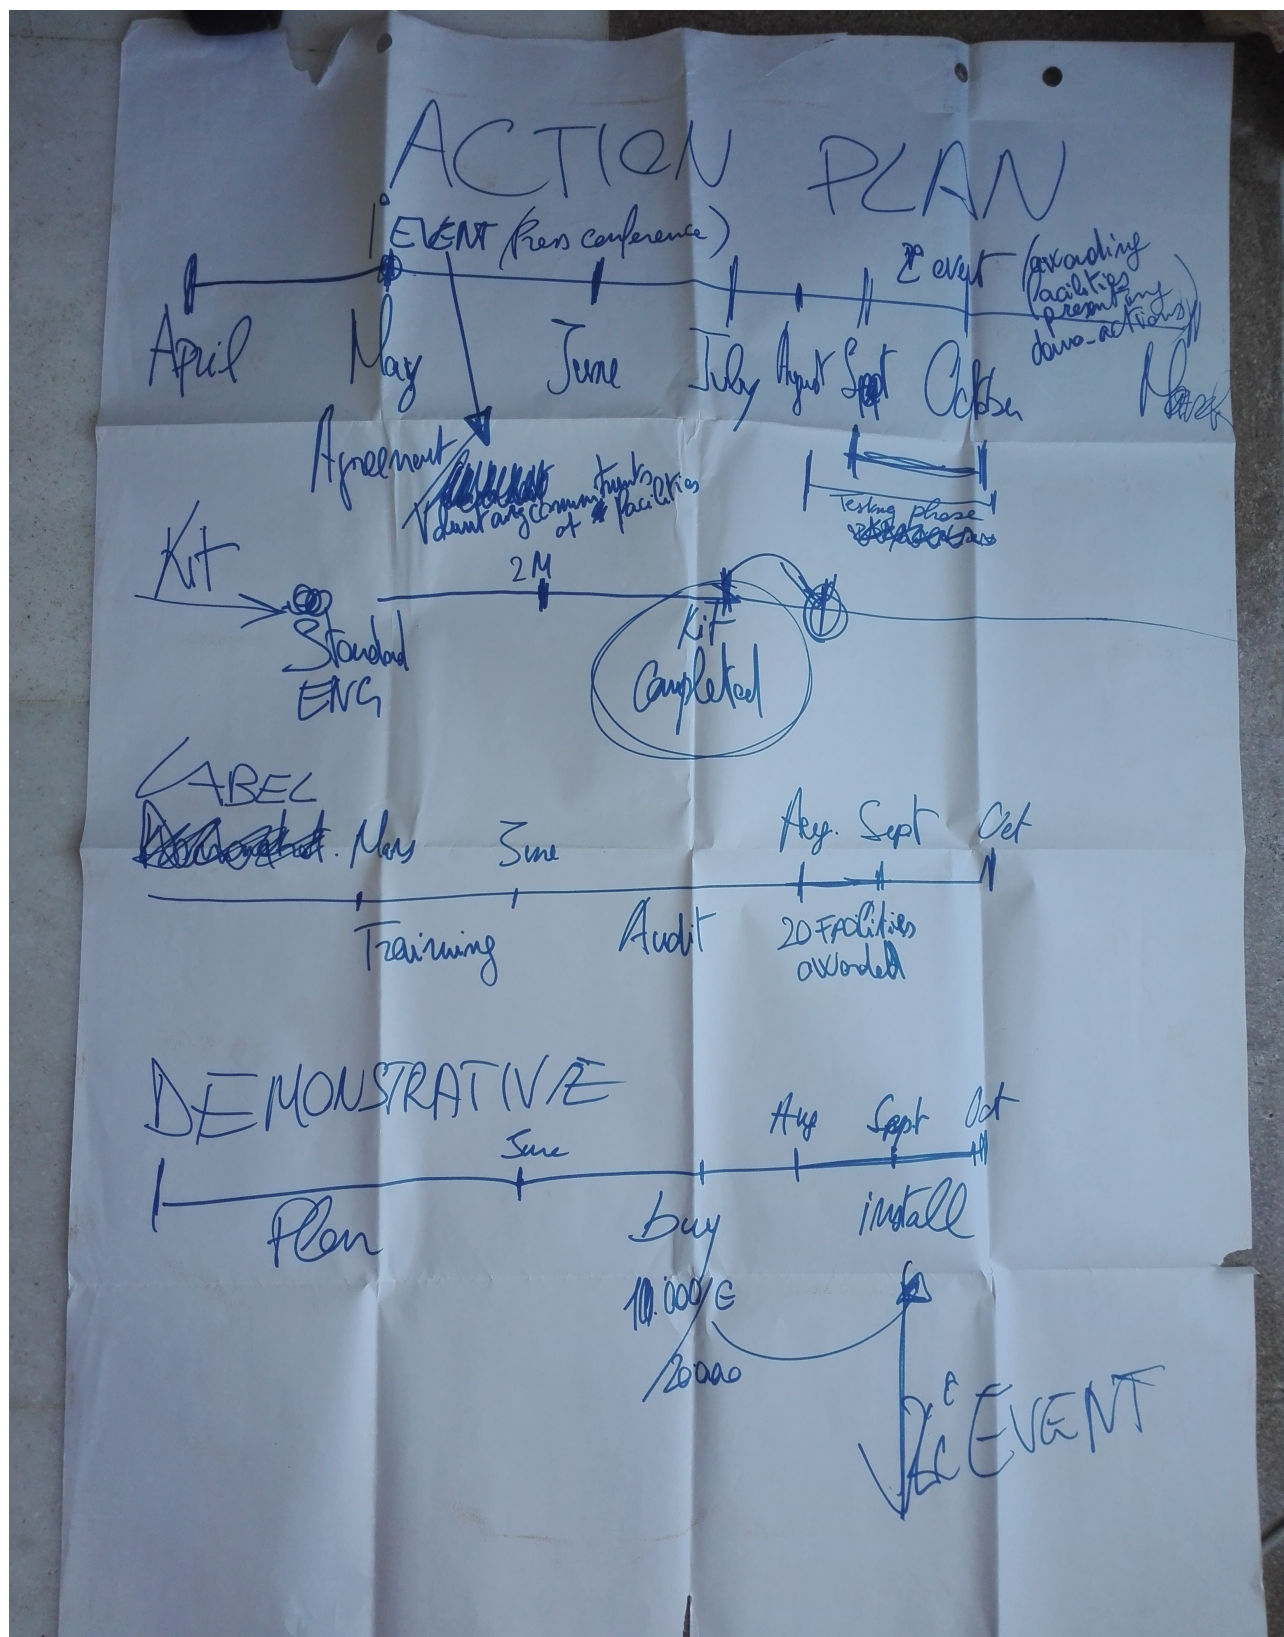 ACTION PLAN
1° EVENT (Press conference)
2° event (awarding
facilities
presenting
demo-actions)
April May June July August Sept October
Agreement
Voluntary commitments
of facilities
Testing phase
Kit
2M
Standard
ENG
Kit
Completed
LABEL
May June Aug. Sept Oct
Training Audit 20 FACilities
awarded
DEMONSTRATIVE
June Aug Sept Oct
Plan buy install
10.000 €
20000
EVENT